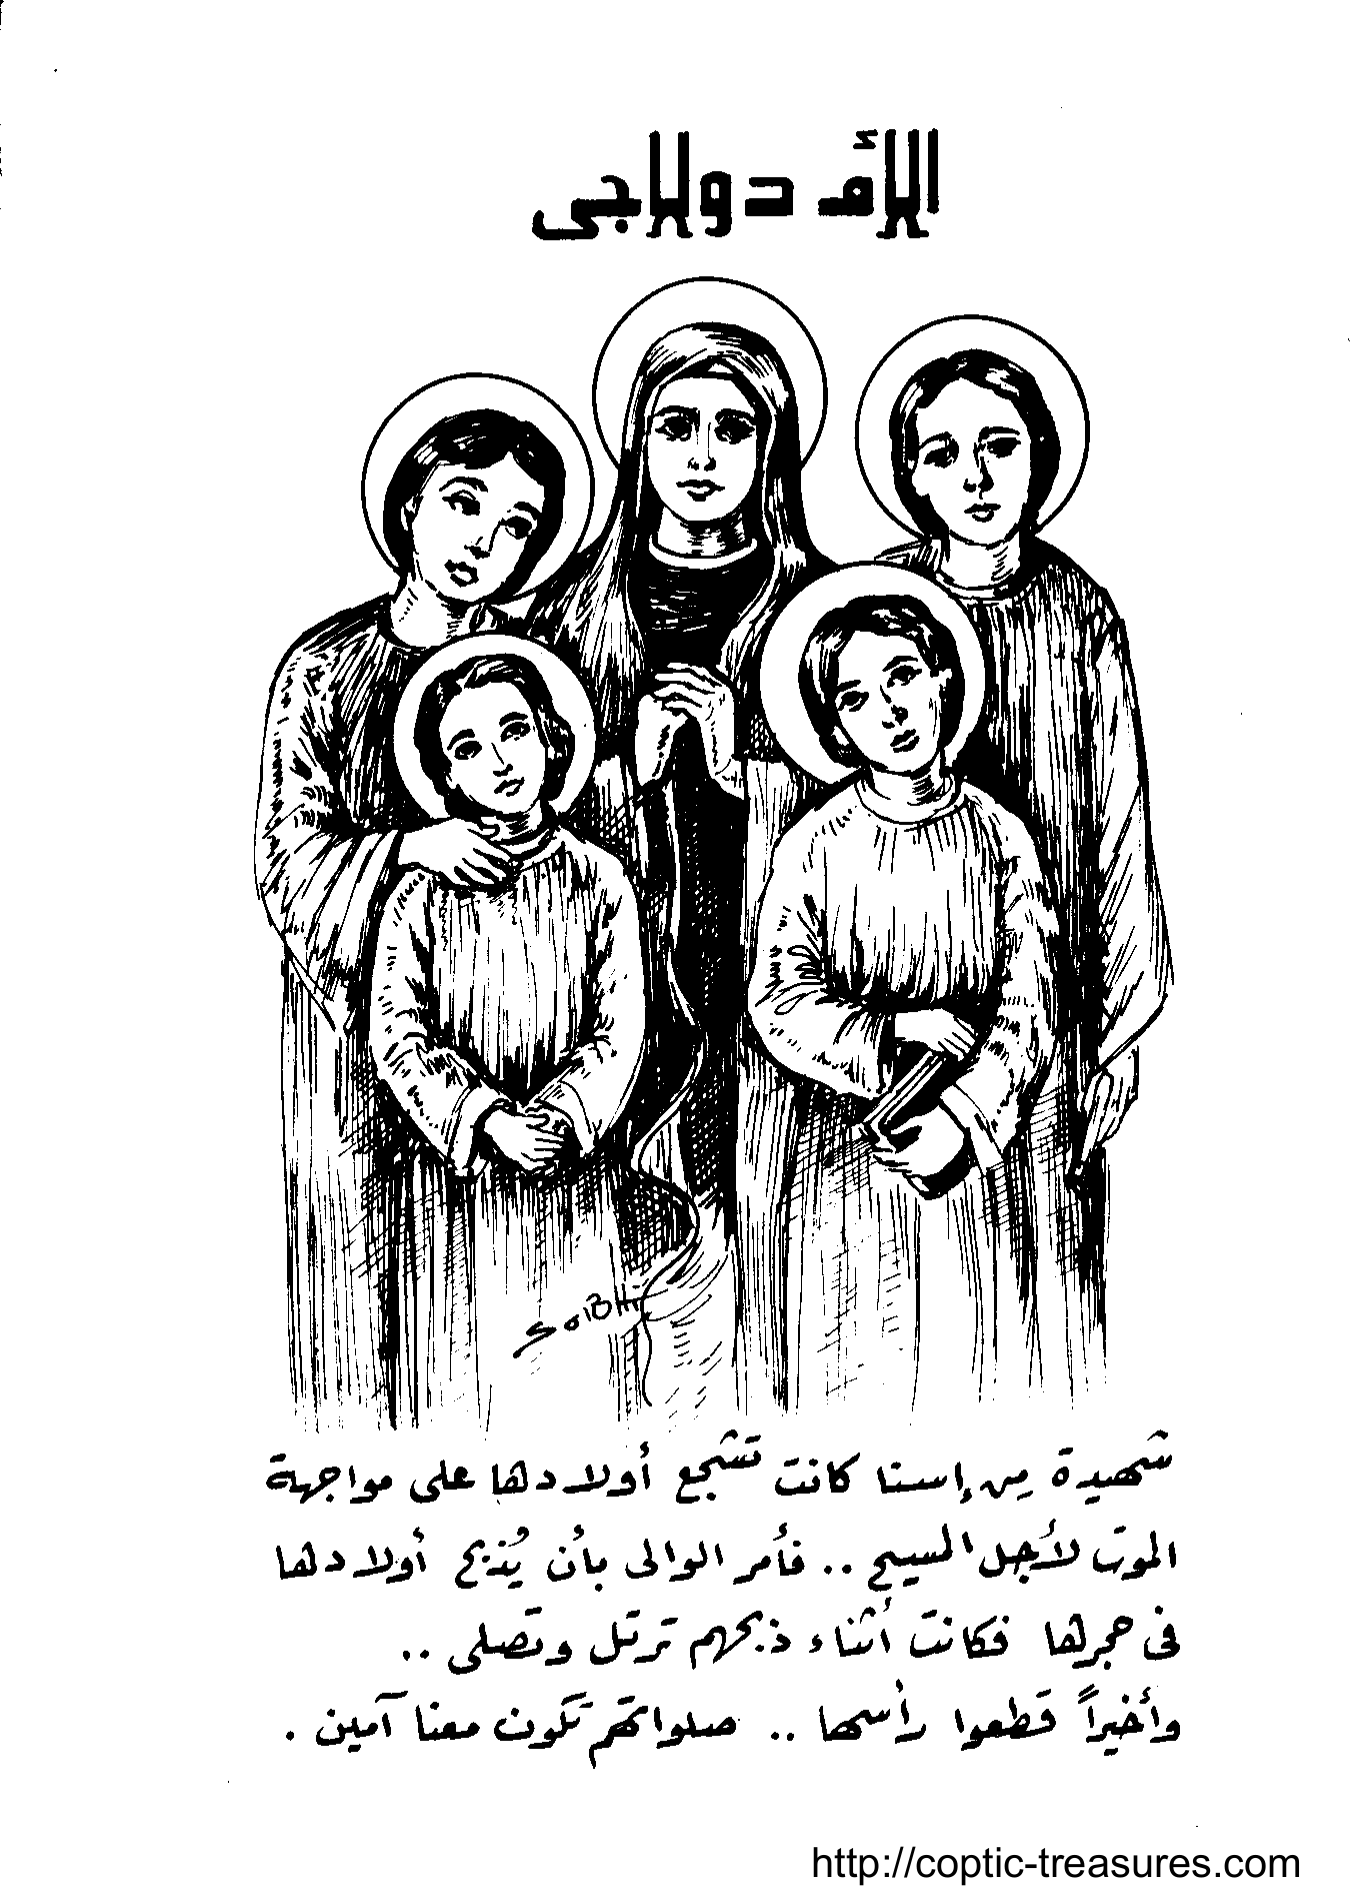 الأم دولاجى
SOBHI
شهيدة من إسنا كانت تشجع أولادها على مواجهة
الموت لأجل المسيح .. فأمر الوالى بأن يُذبح أولادها
فى حجرها فكانت أثناء ذبحهم ترتل وتصلى ..
وأخيراً قطعوا رأسها .. صلواتهم تكون معنا آمين .
http://coptic-treasures.com